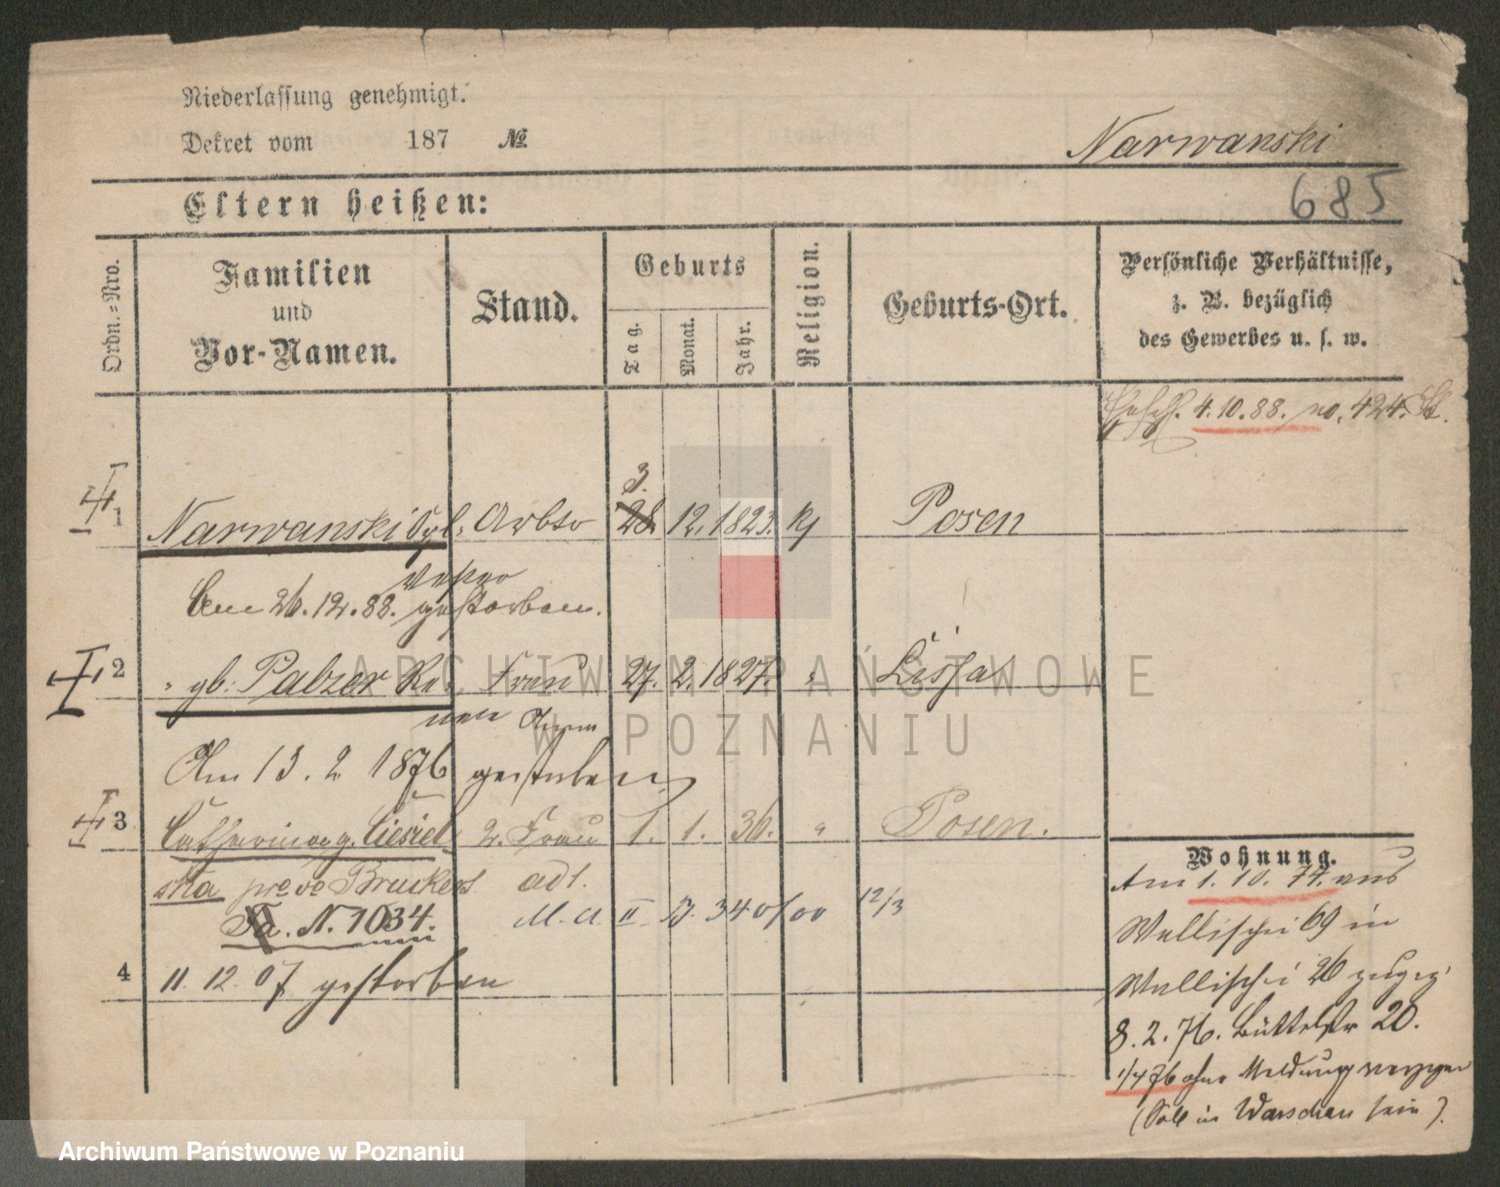 Niederlassung genehmigt.
Dekret vom 187 No.
Narwanski
685
Eltern heißen:
Ordn.=Nro.
Familien
und
Vor-Namen.
Stand.
Geburts
Tag.
Monat.
Jahr.
Religion.
Geburts-Ort.
Persönliche Verhältnisse,
z. B. bezüglich
des Gewerbes u. s. w.
4.10.88. no. 424.
3.
1 Narwanski Arbtr 28. 12. 1823. kf Posen
Am 26.12.88. gestorben.
2 " gb. Palzer Frau 27. 2. 1827. " Lissa
Am 13. 2. 1876 gestorben
3 Catharina g. Ciesiel- 2. Frau 1. 1. 36. " Posen.
ska pr. vo Bruckert adl.
N. 1034. M. A. II 12/3
4 11. 12. 07 gestorben
Wohnung.
Am 1. 10. 74. aus
Wallischei 69 in
Wallischei 26 zugez.
8. 2. 76. Büttelstr 20.
1/4 76 ohne Meldung verzogen
(Soll in Warschau sein).
ARCHIWUM PAŃSTWOWE
W POZNANIU
Archiwum Państwowe w Poznaniu